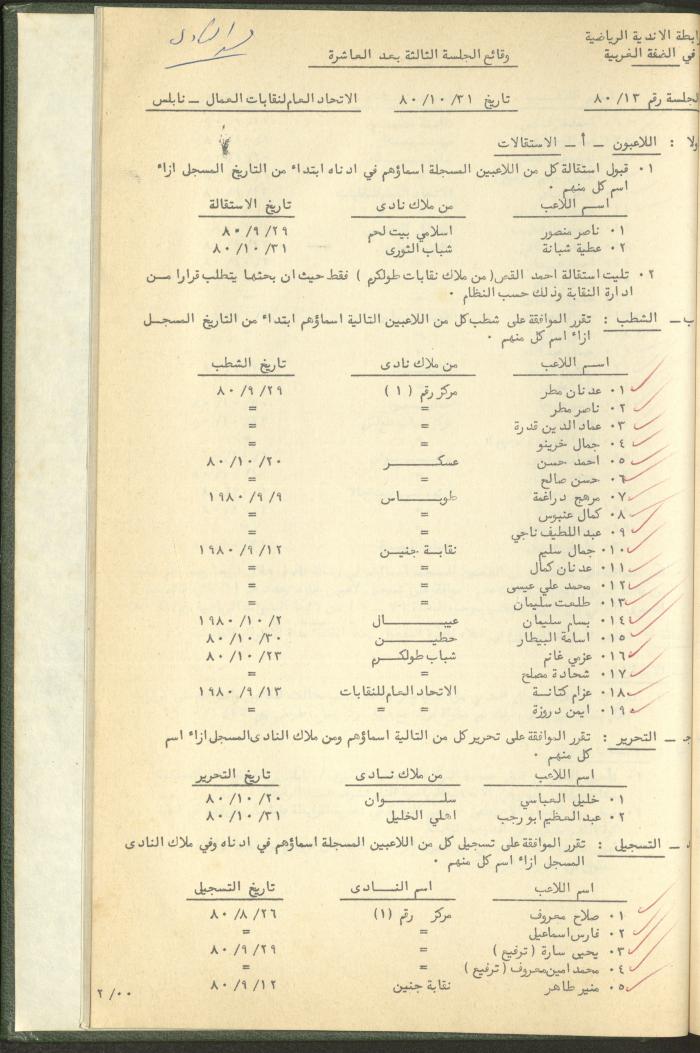 رابطة الاندية الرياضية
في الضفة الغربية
وقائع الجلسة الثالثة بعد العاشرة
الجلسة رقم ٨٠/١٣ تاريخ ٨٠/١٠/٣١ الاتحاد العام لنقابات العمال ــ نابلس
ولا : اللاعبون ــ أ ــ الاستقالات
٠١ قبول استقالة كل من اللاعبين المسجلة اسماؤهم في ادناه ابتداء من التاريخ المسجل ازاء
اسم كل منهم ٠
اسم اللاعب من ملاك نادى تاريخ الاستقالة
٠١ ناصر منصور اسلامي بيت لحم ٨٠/٩/٢٩
٠٢ عطية شبانة شباب الثورى ٨٠/١٠/٣١
٠٢ تليت استقالة احمد القص (من ملاك نقابات طولكرم) فقط حيث ان بحثها يتطلب قرارا من
ادارة النقابة وذلك حسب النظام ٠
ب ــ الشطب : تقرر الموافقة على شطب كل من اللاعبين التالية اسماؤهم ابتداء من التاريخ المسجل
ازاء اسم كل منهم ٠
اسم اللاعب من ملاك نادى تاريخ الشطب
٠١ عدنان مطر مركز رقم (١) ٨٠/٩/٢٩
٠٢ ناصر مطر = =
٠٣ عماد الدين قدرة = =
٠٤ جمال خرينو = =
٠٥ احمد حسن عسكر ٨٠/١٠/٢٠
٠٦ حسن صالح = =
٠٧ مرهج دراغمة طوباس ١٩٨٠/٩/٩
٠٨ كمال عنبوس = =
٠٩ عبد اللطيف ناجي = =
٠١٠ جمال سليم نقابة جنين ١٩٨٠/٩/١٢
٠١١ عدنان كمال = =
٠١٢ محمد علي عيسى = =
٠١٣ طلعت سليمان = =
٠١٤ بسام سليمان عيبال ١٩٨٠/١٠/٢
٠١٥ اسامة البيطار حطين ٨٠/١٠/٣٠
٠١٦ عزمي غانم شباب طولكرم ٨٠/١٠/٢٣
٠١٧ شحادة مصلح = =
٠١٨ عزام كتانة الاتحاد العام للنقابات ١٩٨٠/٩/١٣
٠١٩ ايمن دروزة = = =
جـ ــ التحرير : تقرر الموافقة على تحرير كل من التالية اسماؤهم ومن ملاك النادى المسجل ازاء اسم
كل منهم ٠
اسم اللاعب من ملاك نادى تاريخ التحرير
٠١ خليل العباسي سلوان ٨٠/١٠/٢٠
٠٢ عبد العظيم ابو رجب اهلي الخليل ٨٠/١٠/٣١
د ــ التسجيل : تقرر الموافقة على تسجيل كل من اللاعبين المسجلة اسماؤهم في ادناه وفي ملاك النادى
المسجل ازاء اسم كل منهم ٠
اسم اللاعب اسم النادى تاريخ التسجيل
٠١ صلاح معروف مركز رقم (١) ٨٠/٨/٢٦
٠٢ فارس اسماعيل = =
٠٣ يحيى سارة (ترفيع) = ٨٠/٩/٢٩
٠٤ محمد امين معروف (ترفيع) = =
٠٥ منير طاهر نقابة جنين ٨٠/٩/١٢
٢/٠٠